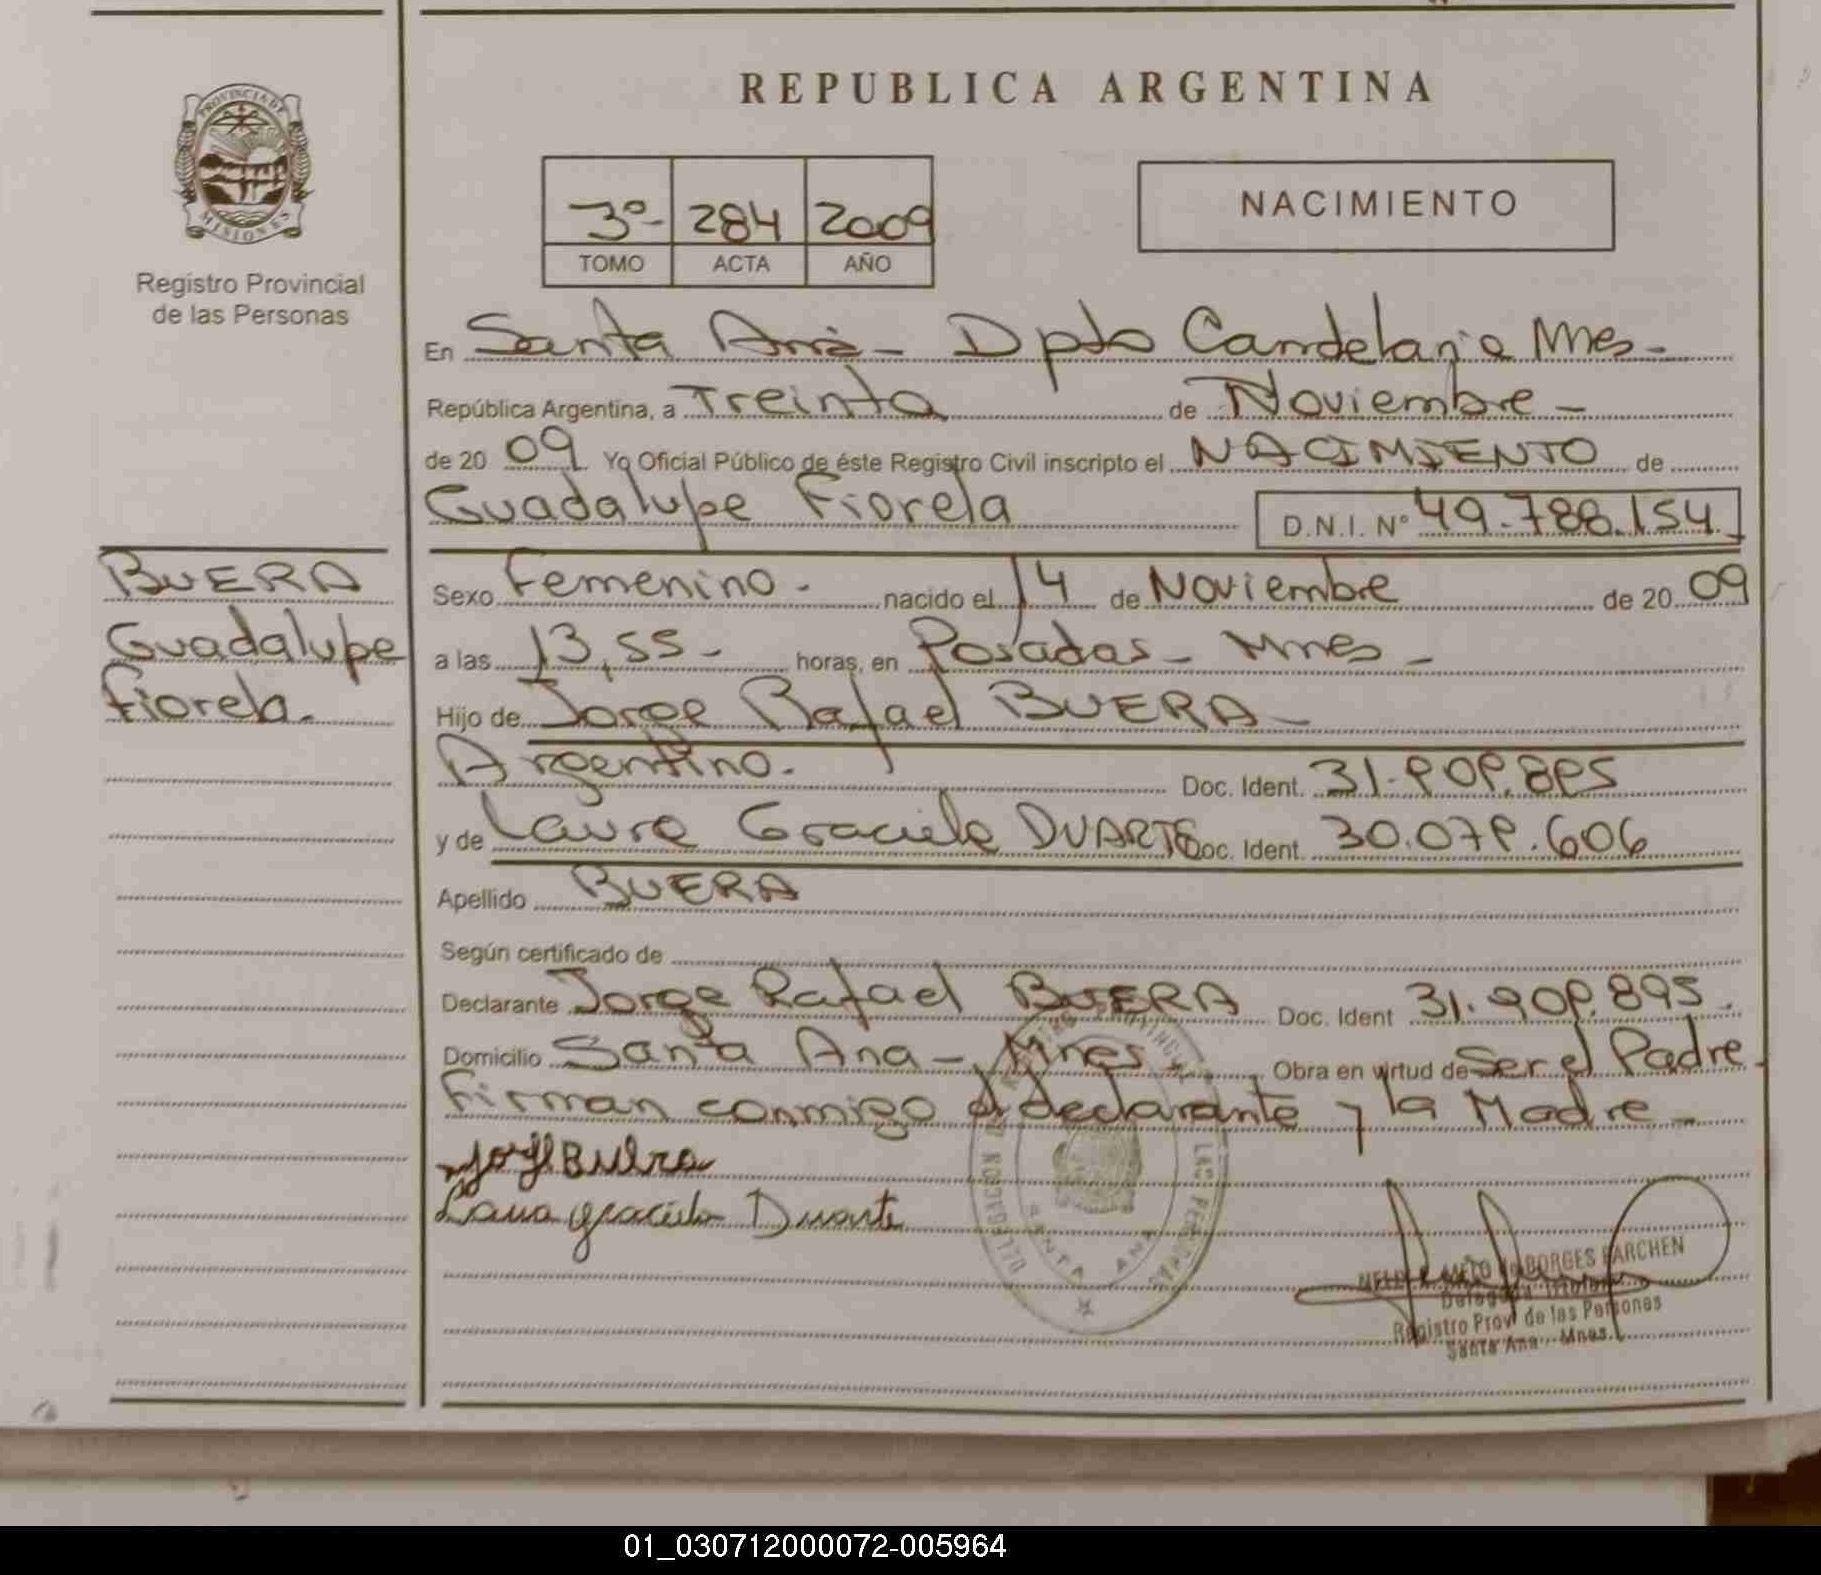 REPUBLICA ARGENTINA
PROVINCIA DE
MISIONES
Registro Provincial
de las Personas
3º- 284 2009
TOMO ACTA AÑO
NACIMIENTO
En Santa Ana - Dpto Candelaria Mnes-
República Argentina, a Treinta de Noviembre -
de 20 09 Yo Oficial Público de éste Registro Civil inscripto el NACIMIENTO de
Guadalupe Fiorela D.N.I. Nº 49.788.154
BUERA
Guadalupe
Fiorela.
Sexo Femenino - nacido el 14 de Noviembre de 20 09
a las 13,55 - horas, en Posadas - Mnes -
Hijo de Jorge Rafael BUERA -
Argentino. Doc. Ident. 31.909.895
y de Laura Graciela DUARTE Doc. Ident. 30.079.606
Apellido BUERA
Según certificado de
Declarante Jorge Rafael BUERA Doc. Ident 31.909.895.
Domicilio Santa Ana - Mnes Obra en virtud de Ser el Padre -
Firman conmigo el declarante y la Madre -
Jorge Buera
Laura graciela Duarte
DELEGACION REGISTRO PROVINCIAL DE LAS PERSONAS
SANTA ANA
BORGES PARCHEN
Delegada Titular
Registro Prov. de las Personas
Santa Ana - Mnes.
01_030712000072-005964